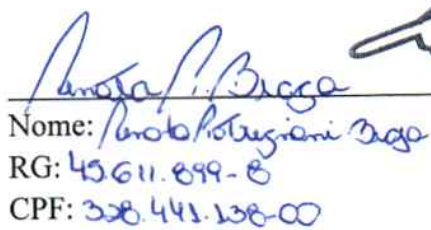 Renata P. Braga
Nome: Renata Braga
RG: 45.611.899-8
CPF: 328.441.138-00